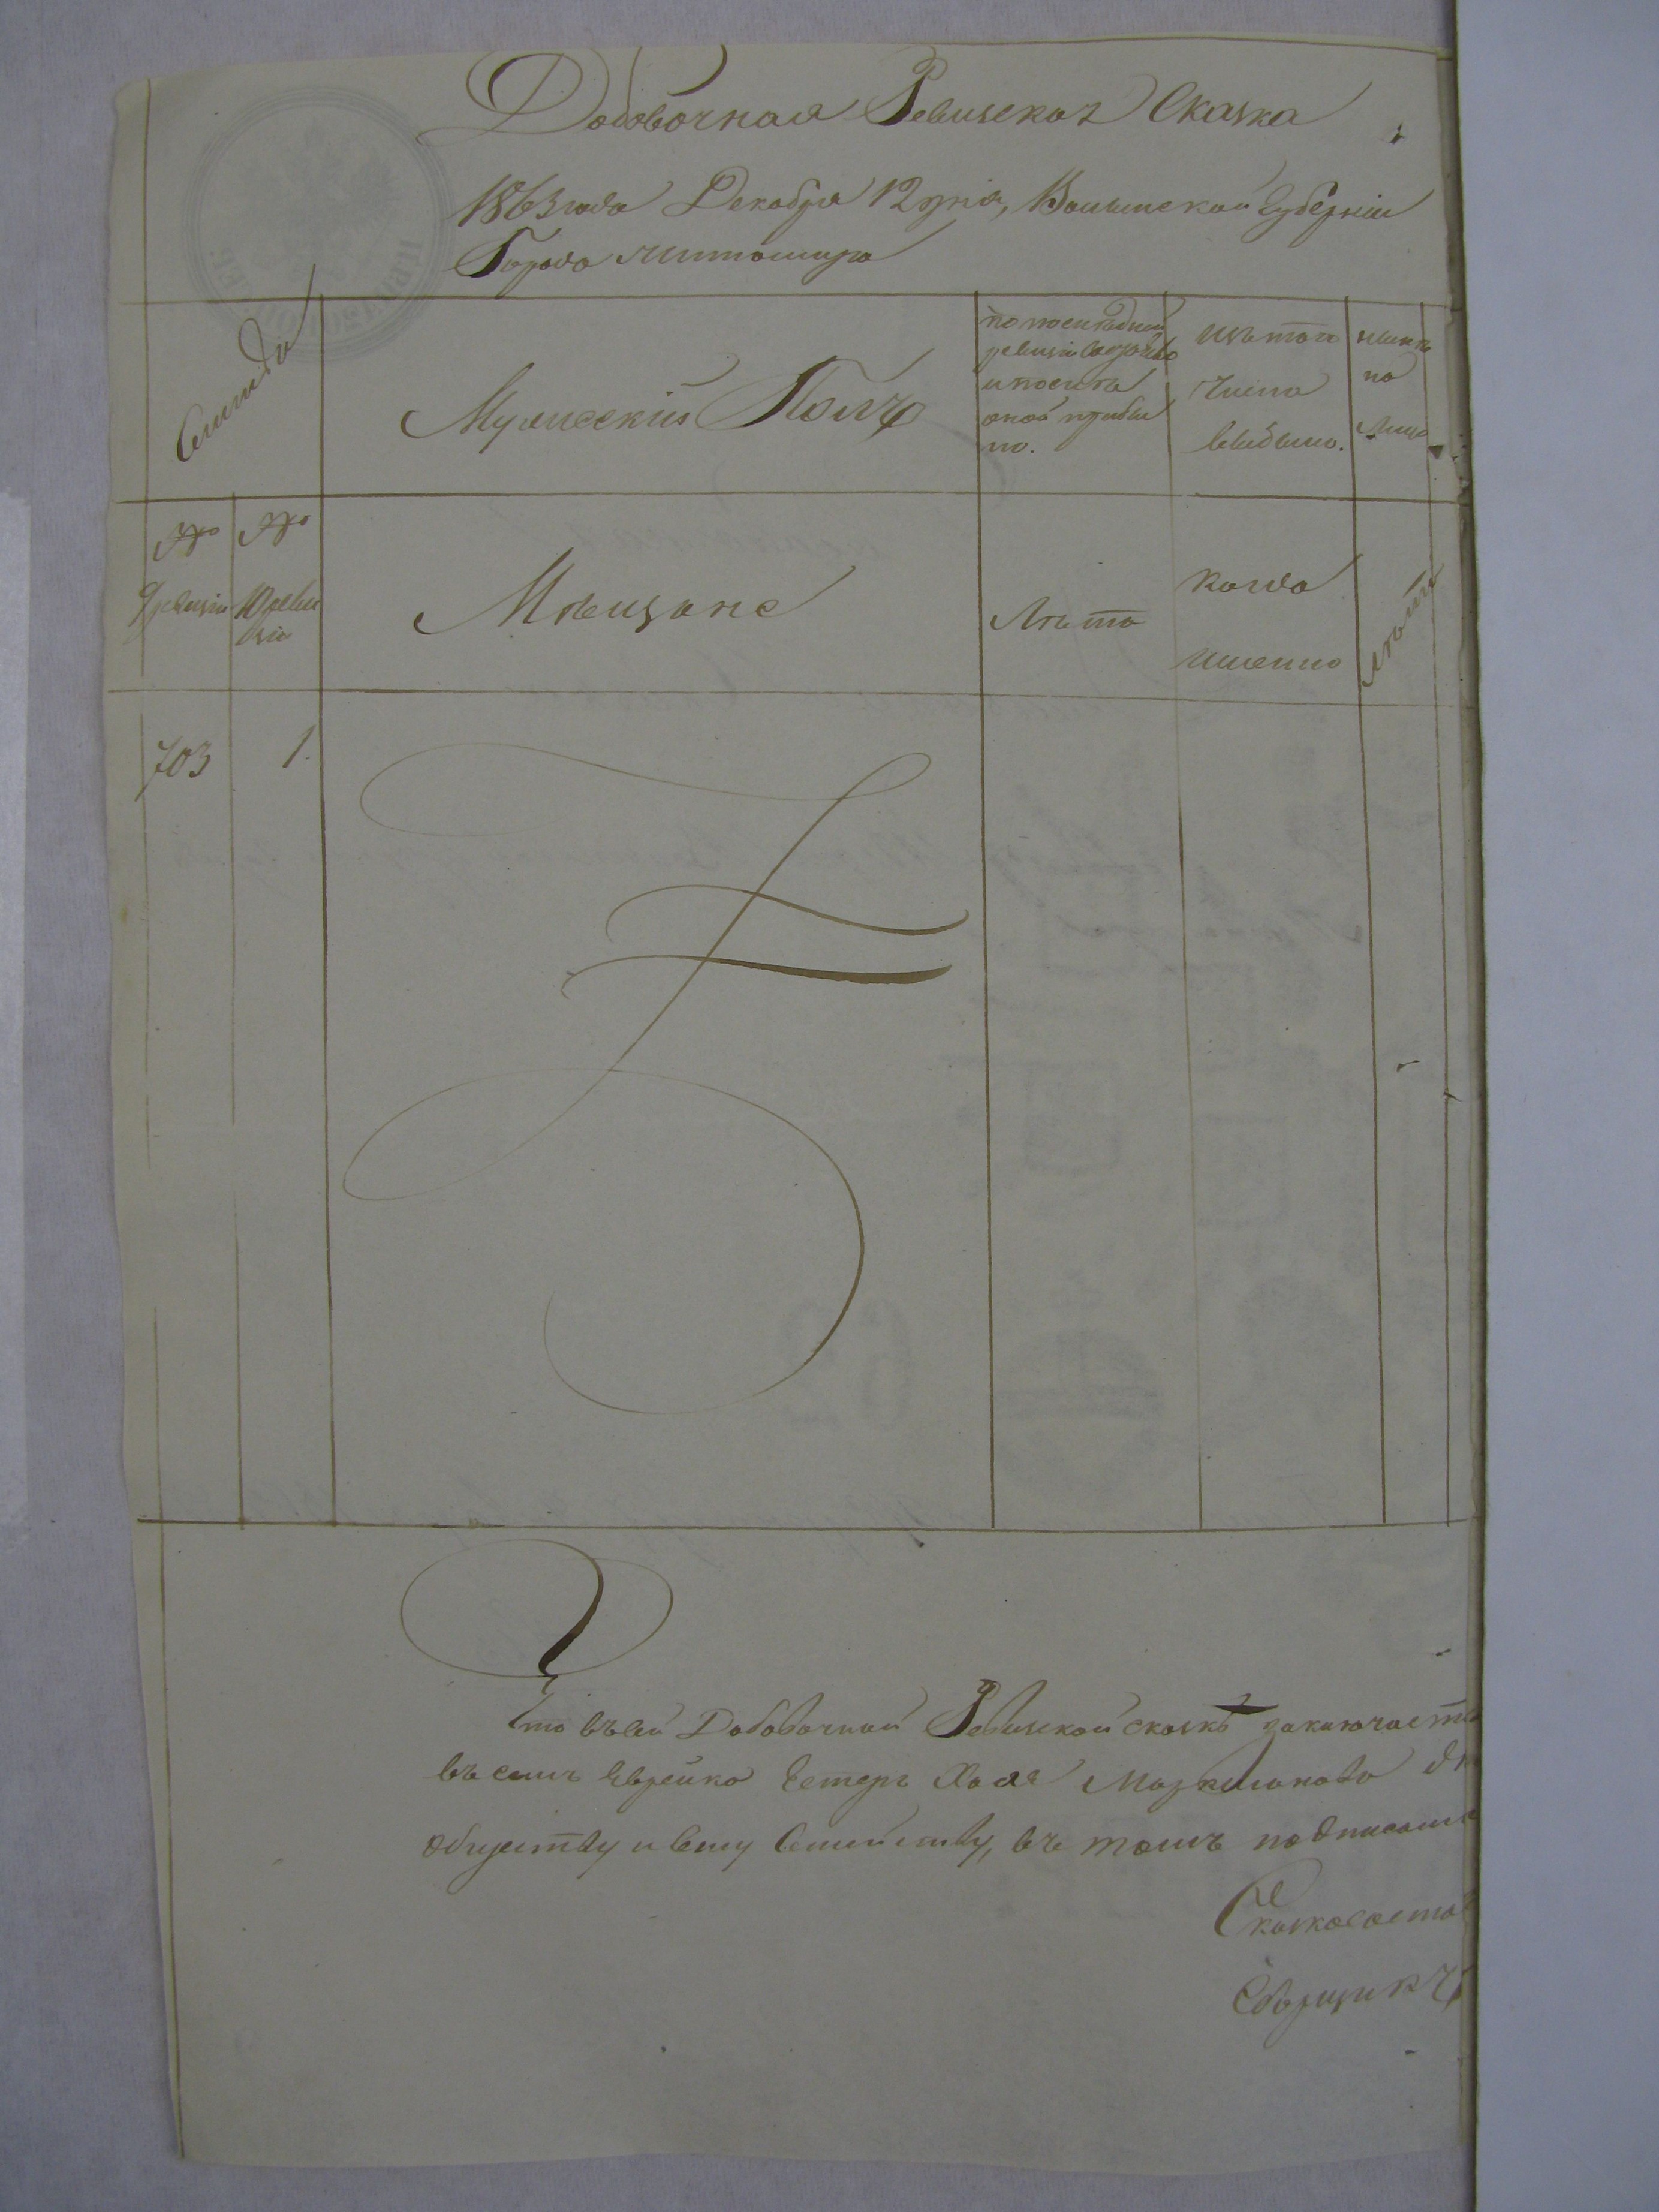 Добовочная Ревизская Сказка
1863 года Декабря 12 дня, Волынской Губерніи
Города Житомира
Семьи
Мужескій Полъ
по последней
ревизіи состояло
и после
оной прибы
ло.
изъ того
числа
выбыло.
ныне
на
лицо
№
9 ревизіи
№
10 реви
зіи
Мѣщане
Лѣта
когда
именно
лѣта
703
1.
Что въ сей Добовочной Ревизской сказкѣ заключаетъ
въ семъ еврейка Естеръ Хая
обществу и въ томъ
Сказкососта
Сборщикъ